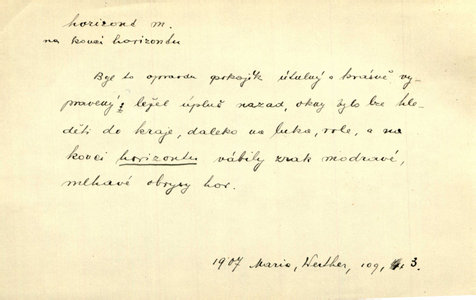 horizont m.
na konci horizontu
Byl to opravdu pokojík útulný a krásně vy-
pravený; ležel úplně nazad, okny bylo lze hle-
děti do kraje, daleko na luka, role, a na
konci horizontu vábily zrak modravé,
mlhavé obrysy hor.
1907 Maria, Werther, 109, 3.